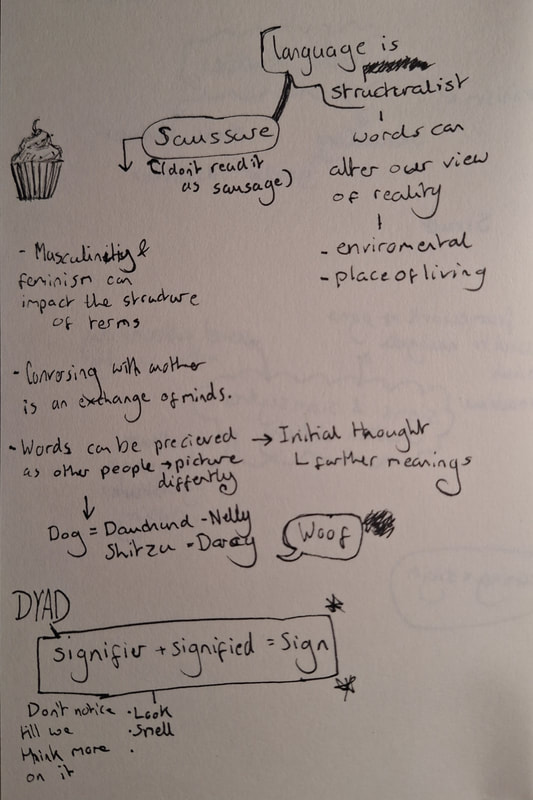 language is
structuralist
words can
alter our view
of reality
- enviromental
- place of living
Saussure
(don't read it
as sausage)
- Masculinity &
feminism can
impact the structure
of terms
- Conversing with another
is an exchange of minds.
- Words can be precieved → Initial thought
as other people → picture
differtly
further meanings
Dog = Dauchund - Nelly
Shitzu - Darcy
Woof
DYAD
signifier + signified = Sign
Don't notice
till we
think more
on it
· Look
· Smell
·